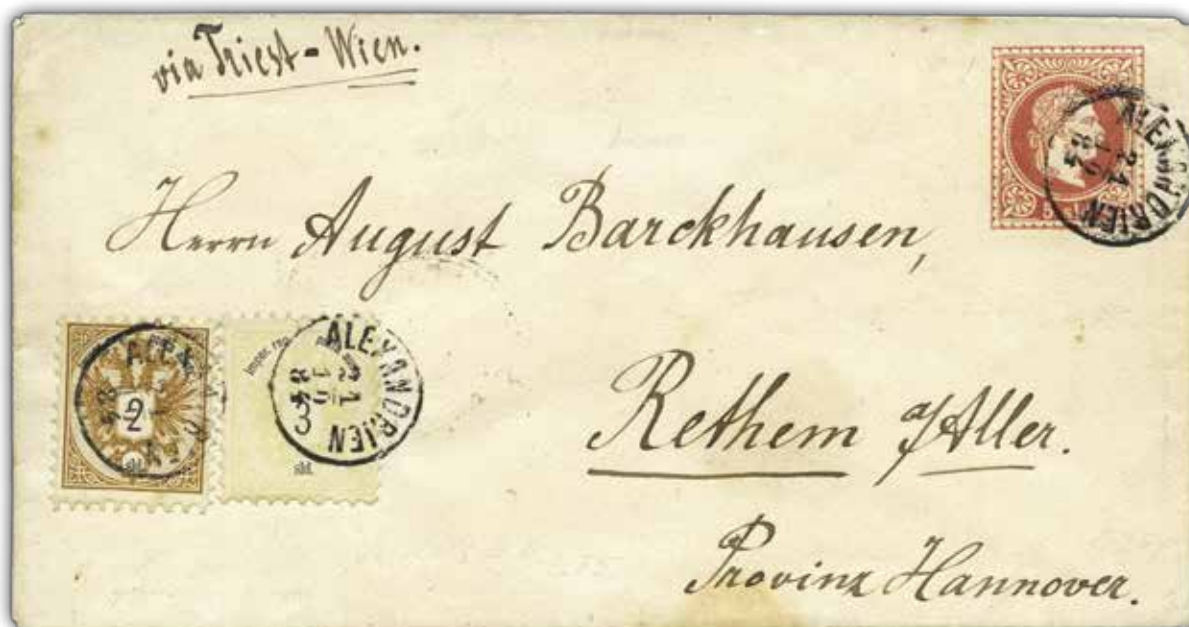 via Triest-Wien.
ALEXANDRIEN
21
12
84
Herrn August Barckhausen,
2
ALEXANDRIEN
21
12
84
3
sld.
Rethem a/Aller.
Provinz Hannover.